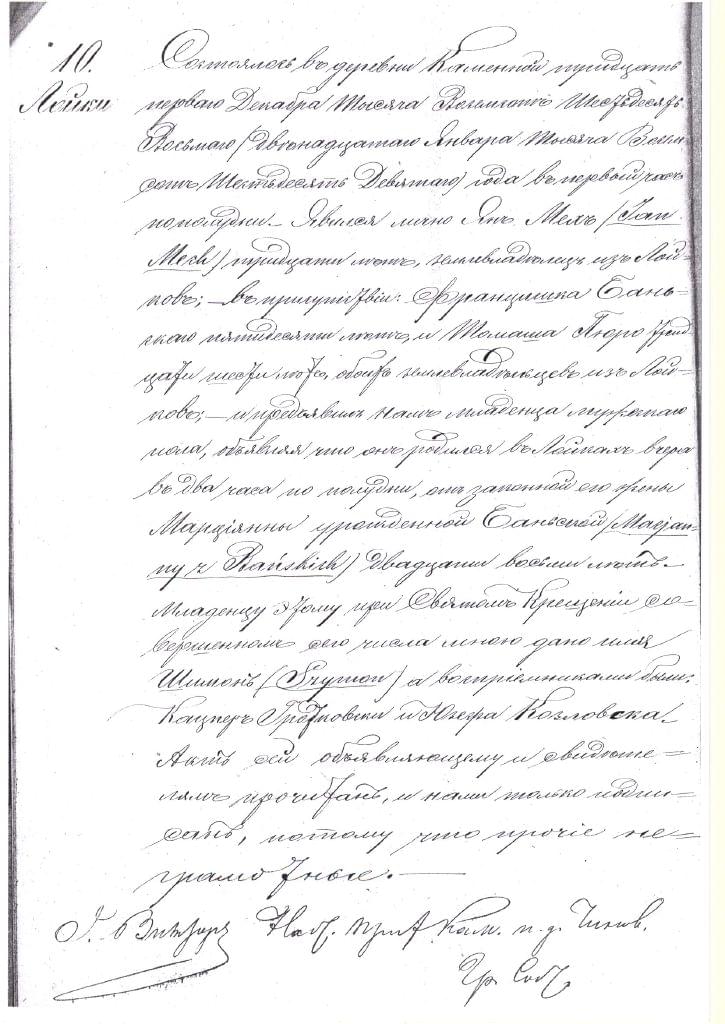 10.
Лойки
Состоялось въ деревни Каменной тридцать
перваго Декабря тысяча Восемсотъ Шестьдесятъ
Восьмаго (двѣнадцатаго Января тысяча Восем-
сотъ Шестьдесятъ Девятаго) года въ первый часъ
по полудни. Явился лично Янъ Мехъ (Jan
Mech) тридцати лѣтъ, землевладѣлецъ изъ Лой-
ковъ; — въ присутствіи: Францишка Бань-
скаго пятидесяти лѣтъ, и Томаша Пюро тридцати
цати шести лѣтъ, обоихъ землевладѣльцевъ изъ Лой-
ковъ; — и предъявилъ намъ младенца мужскаго
пола, объявляя что онъ родился въ Лойкахъ вчера
въ два часа по полудни, отъ законной его жены
Марціянны урожденной Баньской (Marjan-
ny z Bańskich) двадцати восьми лѣтъ.
Младенцу этому при Святомъ Крещеніи со-
вершенномъ сего числа мною дано имя
Шимонъ (Szymon) а воспріемниками были:
Кацперъ и Юзефа Козловска.
Актъ сей объявляющему и свидѣте-
лямъ прочитанъ, и нами только подпи-
санъ, потому что прочіе не-
грамотные. —
Кам. п. д. Чинов.
Гр. Сост.